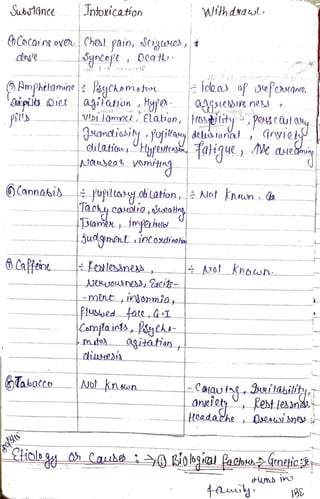 Substance Intoxication Withdrawl.
Cocaine over Chest pain, Seizures,
dose Syncope, Death.
Amphetamine Psychomotor Ideas of reference
Diet agitation, Hyper- aggressiveness,
pills vigilance, Elation, Hostility, persecutary
grandiosity, pupillary delusional, anxiety
dilation, Hypertension, fatigue, dreaming
Nausea vomiting
⑥ Cannabis pupillary dilation, Not known.
Tachy cardia, Sweating
Tremor, impaired
judgment, incordination
⑦ Caffeine Restlessness, Not known.
Nervousness, Excite-
-ment, insomnia,
flushed face, G-I
Complaints, Psycho-
agitation,
diuresis
⑧ Tabacco Not known - Craving, Irritability,
anxiety, Restlessness
Headache, Drowsiness
Etiology or Causes: → ① Biological factors → Genetic →
runs in
family.